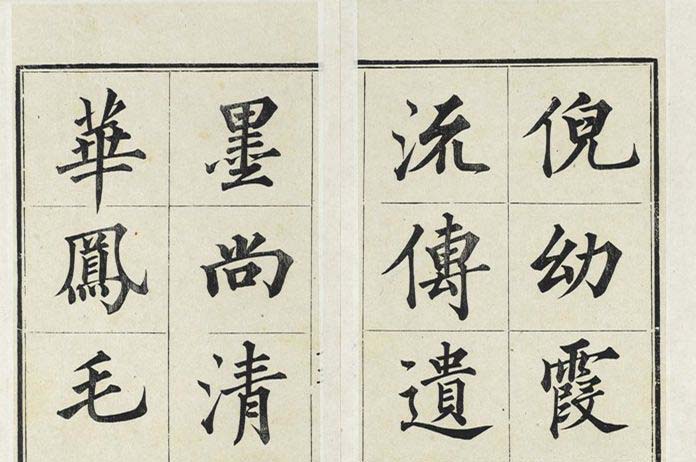 倪幼霞
流傳遺
墨尚清
華鳳毛